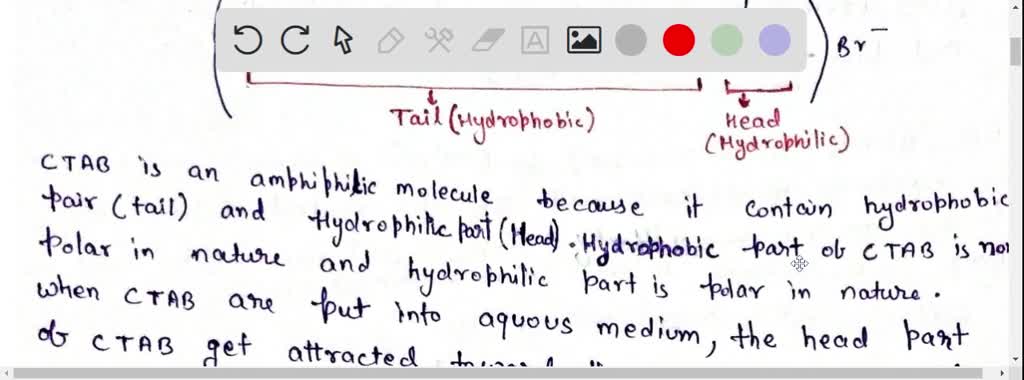 Br⁻
Tail (Hydrophobic)
Head
(Hydrophilic)
CTAB is an amphiphilic molecule because it contain hydrophobic
pair (tail) and Hydrophilic part (Head). Hydrophobic part of CTAB is non
polar in nature and hydrophilic part is polar in nature.
when CTAB are put into aquous medium, the head part
of CTAB get attracted